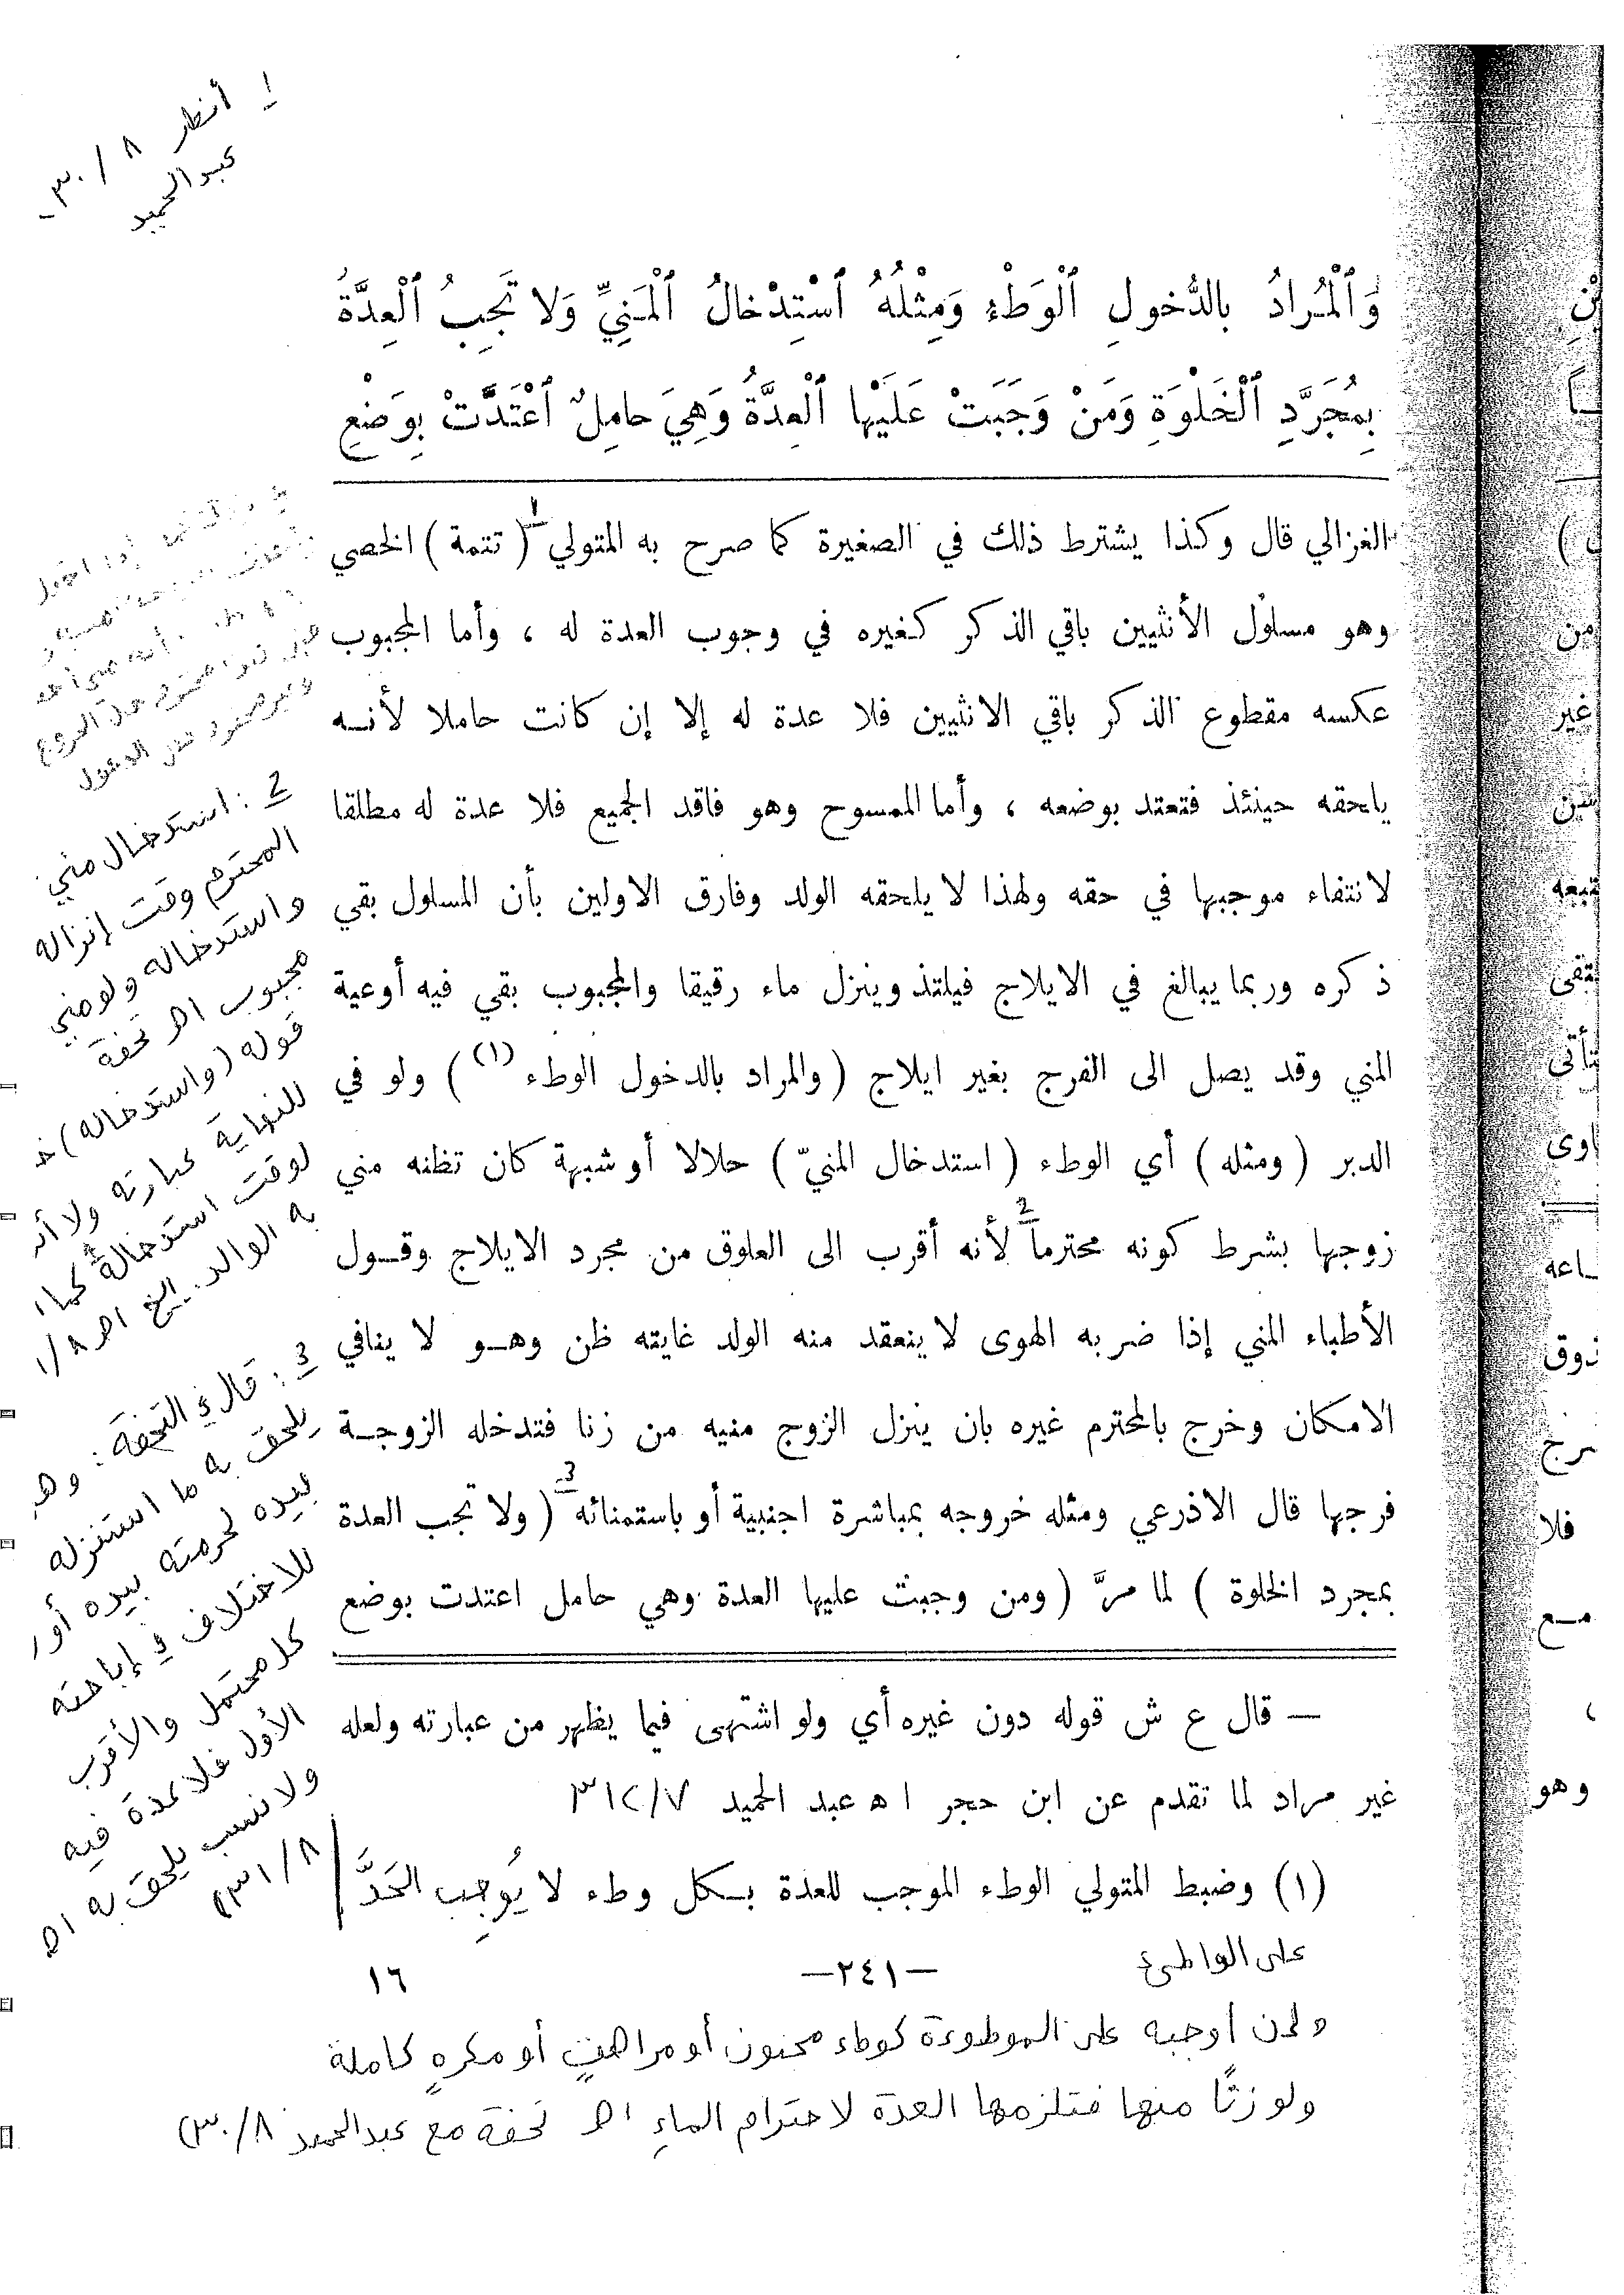 1 أنظر ٨/٢٣٠
عبد الحميد
وَٱلْمُرادُ بالدُّخولِ ٱلْوَطْءُ وَمِثْلُهُ ٱسْتِدْخالُ ٱلْمَنِيِّ وَلا تَجِبُ ٱلْعِدَّةُ
بِمُجَرَّدِ ٱلْخَلْوَةِ وَمَنْ وَجَبَتْ عَلَيْها ٱلْعِدَّةُ وَهِيَ حامِلٌ ٱعْتَدَّتْ بِوَضْعِ
الغزالي قال وكذا يشترط ذلك في الصغيرة كما صرح به المتولي 1 ( تتمة ) الخصي
وهو مسلول الأنثيين باقي الذكر كغيره في وجوب العدة له ، وأما المجبوب
عكسه مقطوع الذكر باقي الانثيين فلا عدة له إلا إن كانت حاملا لأنه
يلحقه حينئذ فتعتد بوضعه ، وأما الممسوح وهو فاقد الجميع فلا عدة له مطلقا
لانتفاء موجبها في حقه ولهذا لا يلحقه الولد وفارق الاولين بأن المسلول بقي
ذكره وربما يبالغ في الايلاج فيلتذ وينزل ماء رقيقا والمجبوب بقي فيه أوعية
المني وقد يصل الى الفرج بغير ايلاج ( والمراد بالدخول الوطء (١) ) ولو في
الدبر ( ومثله ) أي الوطء ( استدخال المنيّ ) حلالا أو شبهة كان تظنه مني
زوجها بشرط كونه محترماً 2 لأنه أقرب الى العلوق من مجرد الايلاج وقول
الأطباء المني إذا ضربه الهوى لا ينعقد منه الولد غايته ظن وهو لا ينافي
الامكان وخرج بالمحترم غيره بان ينزل الزوج منيه من زنا فتدخله الزوجة
فرجها قال الاذرعي ومثله خروجه بمباشرة اجنبية أو باستمنائه 3 ( ولا تجب العدة
بمجرد الخلوة ) لما مرَّ ( ومن وجبت عليها العدة وهي حامل اعتدت بوضع
— قال ع ش قوله دون غيره أي ولو اشتهى فيما يظهر من عبارته ولعله
غير مراد لما تقدم عن ابن حجر ا ه عبد الحميد ٣١٢/٧
(١) وضبط المتولي الوطء الموجب للعدة بكل وطء لا يُوجِب الحَدَّ
على الواطئ
—٢٤١—
١٦
وإن أوجبه على الموطوءة كوطء مجنون أو مراهق أو مكرهٍ كاملة
ولو زنًا منها فتلزمها العدة لاحترام الماءِ اهـ تحفة مع عبد الحميد ٢٣٠/٨
2 : استدخال مني
المحترم وقت إنزاله
واستدخاله ولو مني
مجبوب اهـ تحفة
قوله ( واستدخاله ) خ
للنهاية عبارته ولا أثر
لوقت استدخاله كما
به الوالد الخ اهـ
3 : قال في التحفة : وهل
يلحق به ما استنزله
بيده لحرمته بيده أو
للاختلاف في إباحته
كل محتمل والأقرب
الأول فلا عدة فيه
ولا نسب يلحق به اهـ
٢٣١/٨